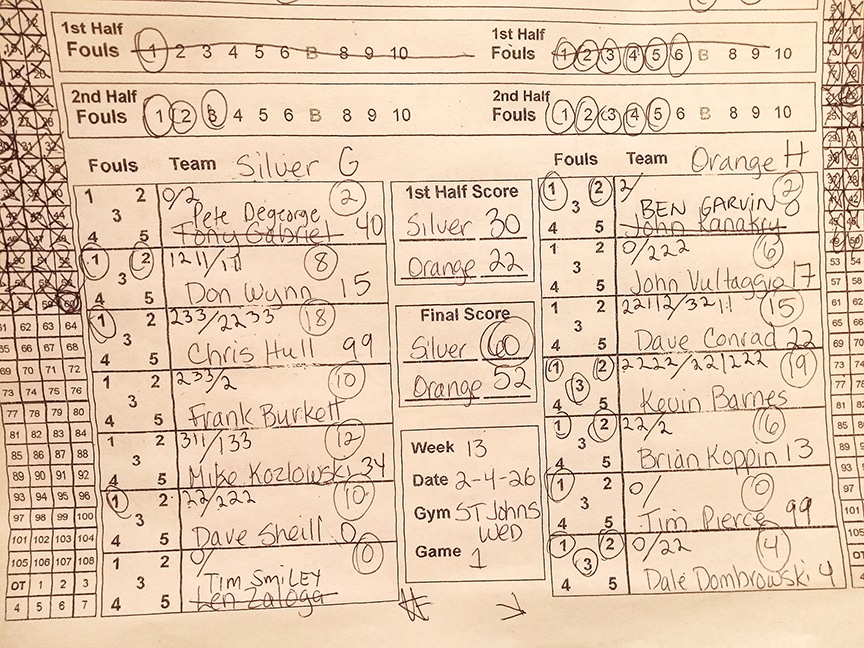 1st Half
Fouls 1 2 3 4 5 6 B 8 9 10
1st Half
Fouls 1 2 3 4 5 6 B 8 9 10
2nd Half
Fouls 1 2 3 4 5 6 B 8 9 10
2nd Half
Fouls 1 2 3 4 5 6 B 8 9 10
Fouls Team Silver G
1 2 3 4 5
0/2 2
Pete Degeorge
Tony Gabriel 40
1 2 3 4 5
1211/111 8
Don Wynn 15
1 2 3 4 5
233/2233 18
Chris Hull 99
1 2 3 4 5
233/2 10
Frank Burkett
1 2 3 4 5
311/133 12
Mike Kozlowski 34
1 2 3 4 5
22/222 10
Dave Sheill 0
1 2 3 4 5
0/ 0
TIM SMILEY
Len Zaloga
1st Half Score
Silver 30
Orange 22
Final Score
Silver 60
Orange 52
Week 13
Date 2-4-26
Gym ST Johns
WED
Game 1
Fouls Team Orange H
1 2 3 4 5
2/ 2
BEN GARVIN 8
John Kanakry
1 2 3 4 5
0/222 6
John Vultaggio 17
1 2 3 4 5
22112/3211 15
Dave Conrad 22
1 2 3 4 5
2222/221222 19
Kevin Barnes
1 2 3 4 5
22/2 6
Brian Koppin 13
1 2 3 4 5
0/ 0
Tim Pierce 99
1 2 3 4 5
0/22 4
Dale Dombrowski 4
61 62 63 64
65 66 67 68
69 70 71 72
73 74 75 76
77 78 79 80
81 82 83 84
85 86 87 88
89 90 91 92
93 94 95 96
97 98 99 100
101 102 103 104
105 106 107 108
OT 1 2 3
4 5 6 7
53 54
57 58
61 62
65 66
69 70
73
77
81
85
89
93
97
101
105
OT
4